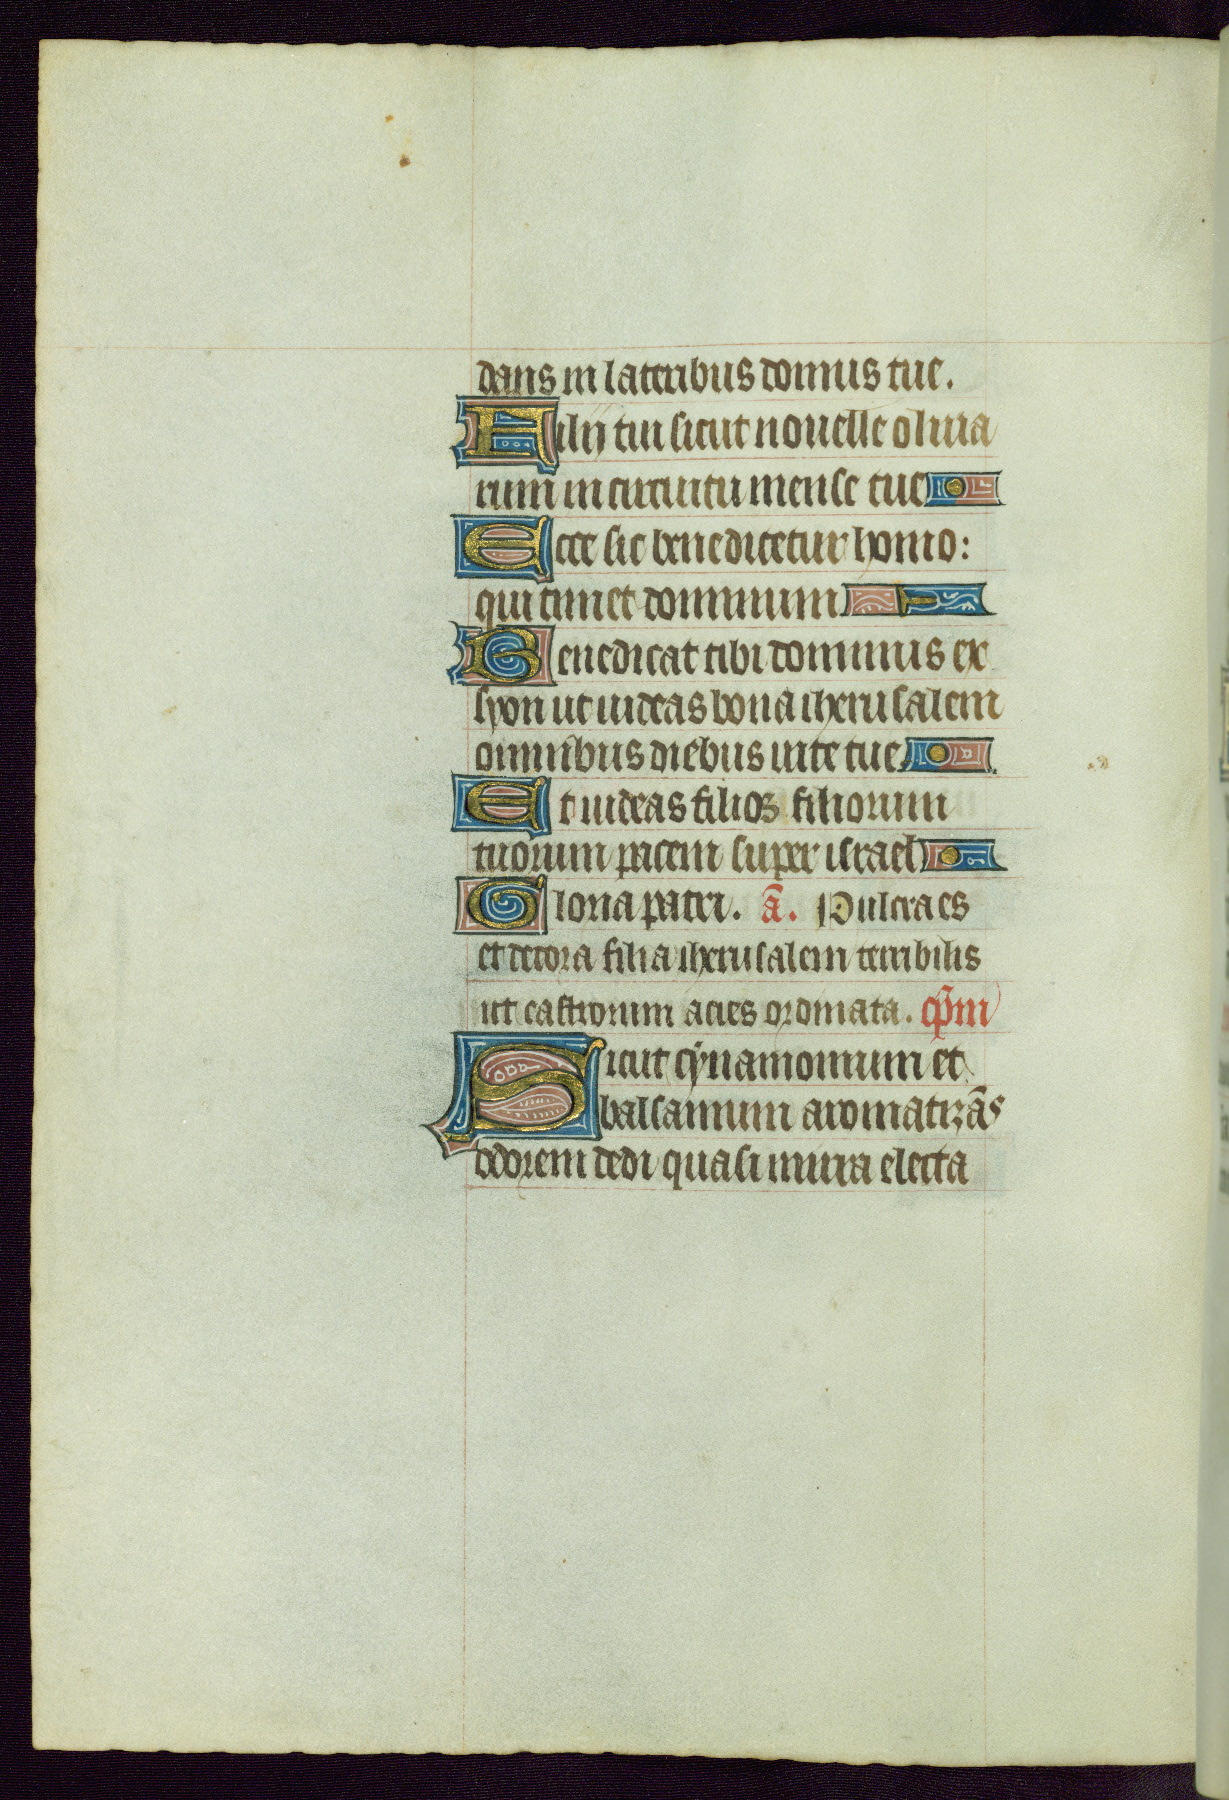 dans in lateribus domus tue.
Filij tui sicut nouelle oliua
rum in circuitu mense tue
Ecce sic benedicetur homo:
qui timet dominum
Benedicat tibi dominus ex
syon ut uideas bona iherusalem
omnibus diebus uite tue
Et uideas filioꝝ filiorum
tuorum pacem super israel
Gloria patri. ā. Pulcra es
et decora filia iherusalem terribilis
ut castrorum acies ordinata. cp̄m
Sicut cynamomum et
balsamum aromatizās
odorem dedi quasi mirra electa